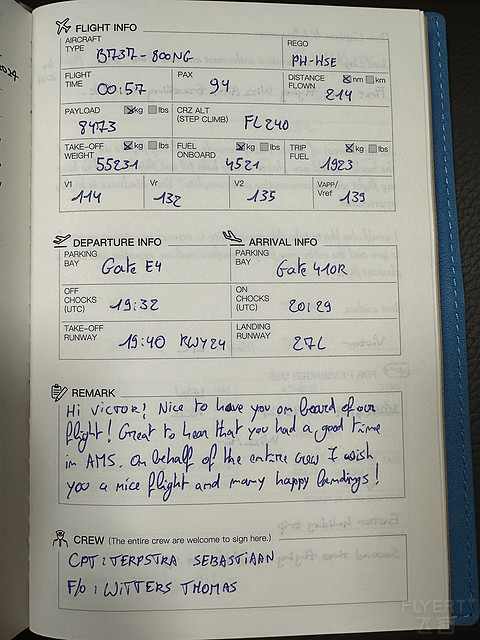 2024
FLIGHT INFO
AIRCRAFT TYPE B737-800NG REGO PH-HSE
FLIGHT TIME 00:57 PAX 94 DISTANCE FLOWN nm km 214
PAYLOAD kg lbs 8473 CRZ ALT (STEP CLIMB) FL240
TAKE-OFF WEIGHT kg lbs 55231 FUEL ONBOARD kg lbs 4521 TRIP FUEL kg lbs 1923
V1 114 Vr 132 V2 135 VAPP/Vref 139
DEPARTURE INFO ARRIVAL INFO
PARKING BAY Gate E4 PARKING BAY Gate 410R
OFF CHOCKS (UTC) 19:32 ON CHOCKS (UTC) 20:29
TAKE-OFF RUNWAY 19:40 RWY24 LANDING RUNWAY 27L
REMARK
Hi VICTOR! Nice to have you on board of our
flight! Great to hear that you had a good time
in AMS. On behalf of the entire crew I wish
you a nice flight and many happy landings!
CREW (The entire crew are welcome to sign here.)
CPT: TERPSTRA SEBASTIAAN
F/o: WITTERS THOMAS
FLYERT
飞客